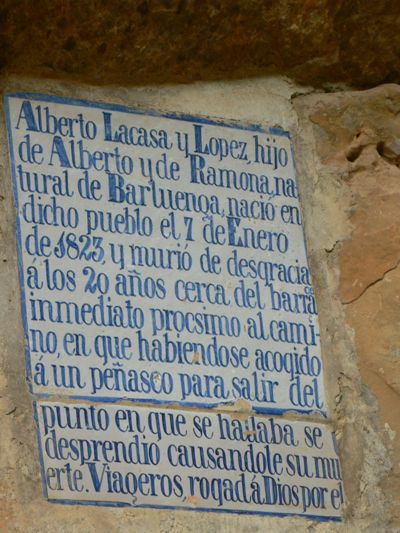 Alberto Lacasa y Lopez, hijo
de Alberto y de Ramona, na
tural de Barluenga, nació en
dicho pueblo el 7 de Enero
de 1823, y murió de desgracia
á los 20 años cerca del barrãco
inmediato procsimo al cami-
no, en que habiendose acogido
á un peñasco para salir del
punto en que se hallaba se
desprendio causandole su mu
erte. Viageros, rogad á Dios por el